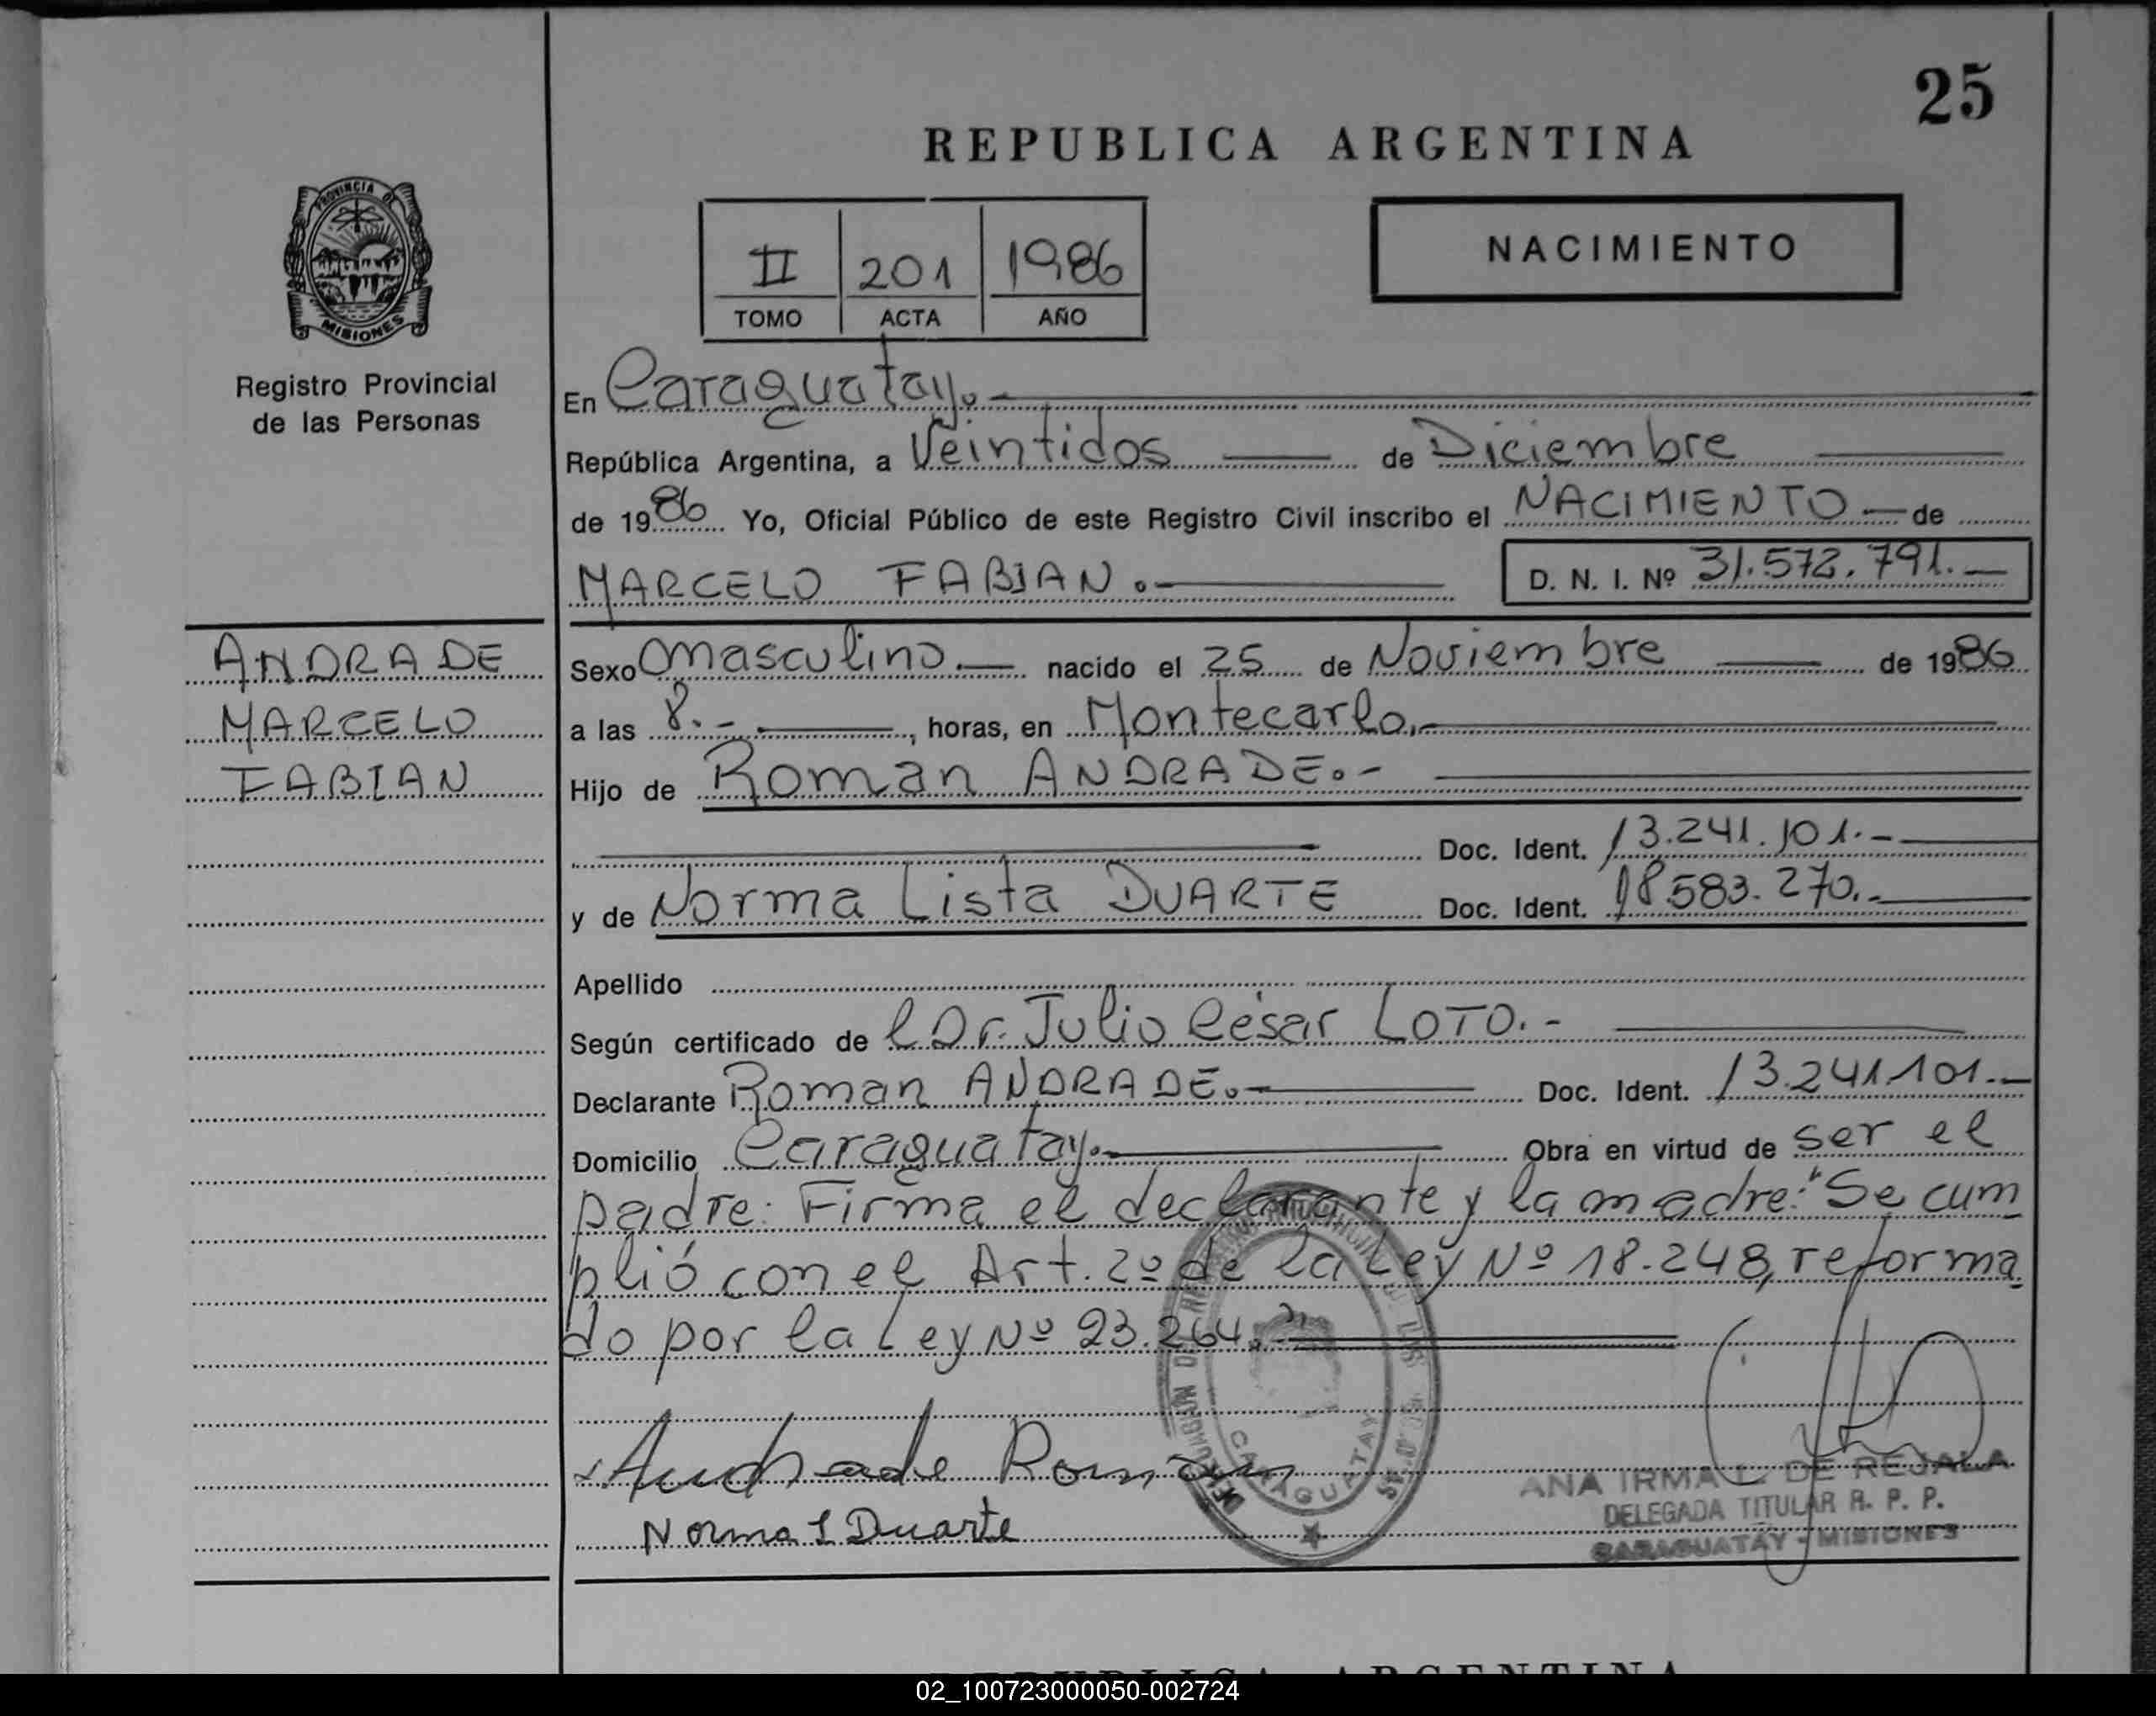 25
REPUBLICA ARGENTINA
PROVINCIA DE
MISIONES
Registro Provincial
de las Personas
II 201 1986
TOMO ACTA AÑO
NACIMIENTO
En Caraguatay.-
República Argentina, a Veintidos de Diciembre
de 1986 Yo, Oficial Público de este Registro Civil inscribo el NACIMIENTO — de
MARCELO FABIAN.- D. N. I. Nº 31.572.791.-
ANDRADE
MARCELO
FABIAN
Sexo Masculino.- nacido el 25 de Noviembre de 1986
a las 8.- , horas, en Montecarlo.-
Hijo de Roman ANDRADE.-
Doc. Ident. 13.241.101.-
y de Norma Lista DUARTE Doc. Ident. 18.583.270.-
Apellido
Según certificado de l Dr. Julio César LOTO.-
Declarante Roman ANDRADE.- Doc. Ident. 13.241.101.-
Domicilio Caraguatay.- Obra en virtud de ser el
padre: Firma el declarante y la madre: "Se cum
plió con el Art. 2º de la Ley Nº 18.248, reforma
do por la Ley Nº 23.264."-
Andrade Roman
Norma L Duarte
CARAGUATAY
ANA IRMA L. DE REJALA
DELEGADA TITULAR R. P. P.
CARAGUATAY - MISIONES
REPUBLICA ARGENTINA
02_100723000050-002724